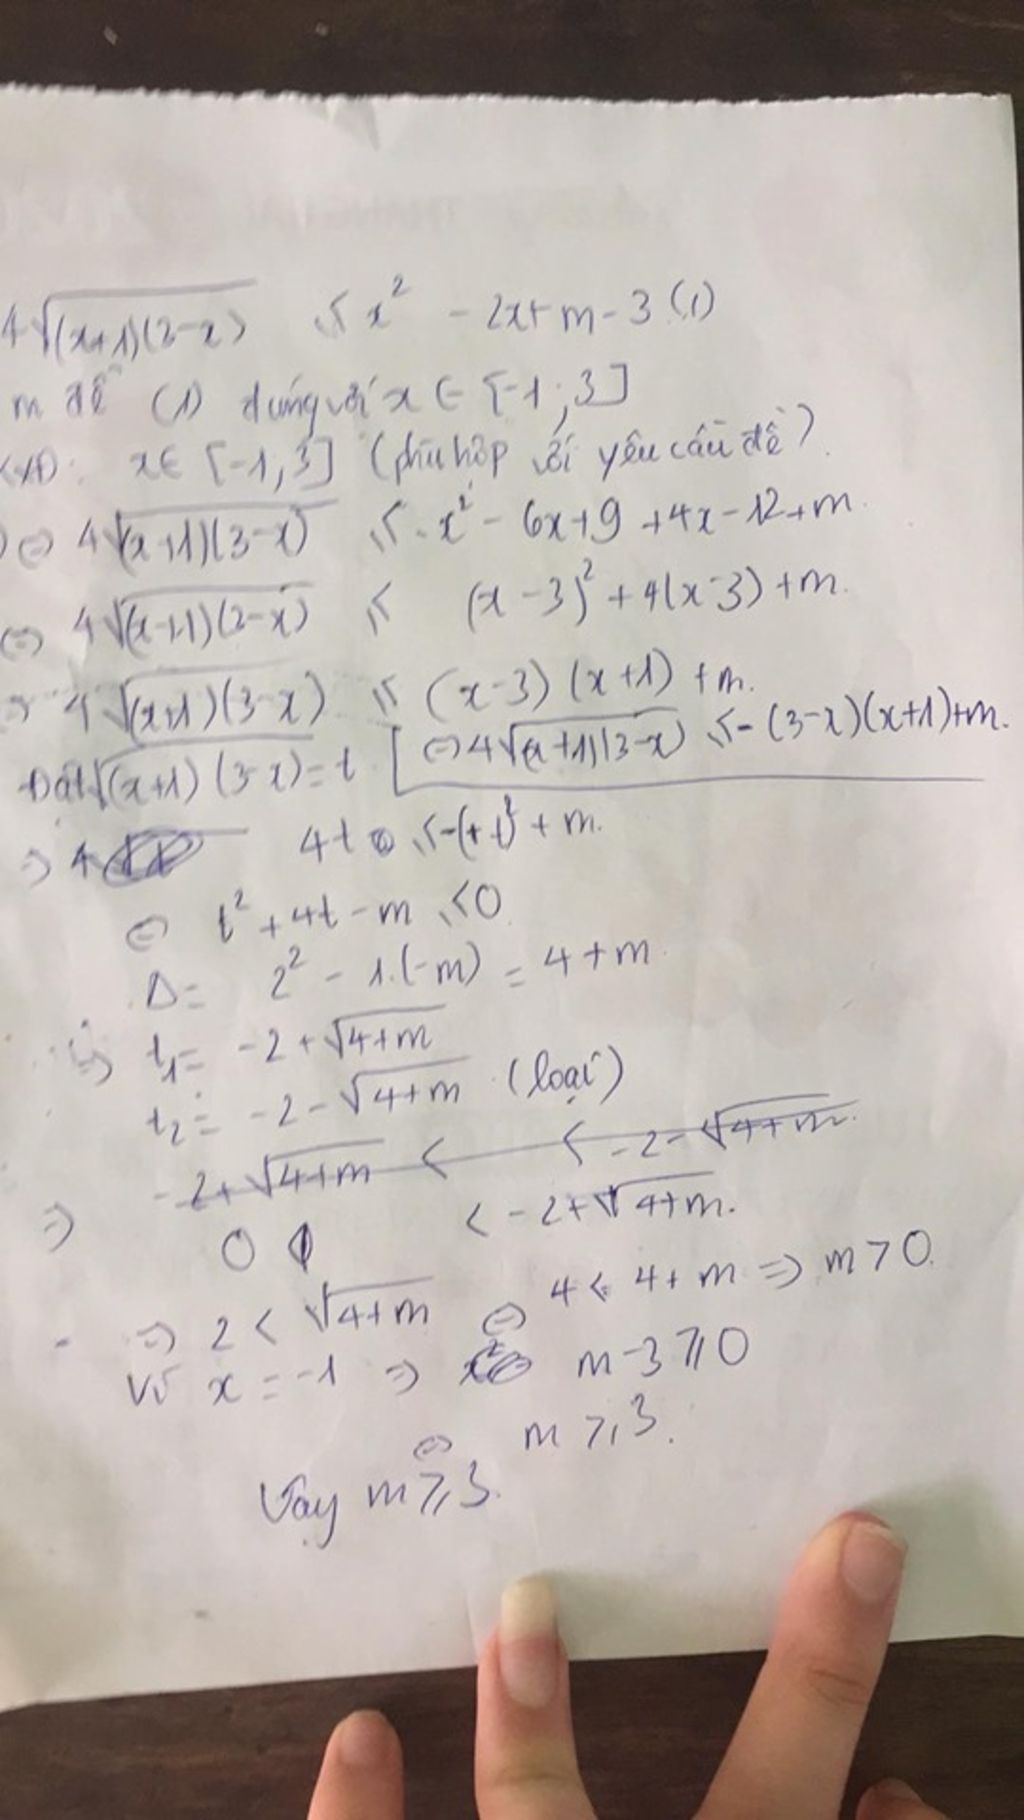 4√(x+1)(3-x) ≤ x² - 2x + m - 3 (1)
m để (1) đúng với x ∈ [-1; 3]
x ∈ [-1, 3] (phù hợp với yêu cầu đề).
⇔ 4√(x+1)(3-x) ≤ x² - 6x + 9 + 4x - 12 + m.
⇔ 4√(x+1)(3-x) ≤ (x-3)² + 4(x-3) + m.
4√(x+1)(3-x) ≤ (x-3)(x+1) + m.
⇔ 4√(x+1)(3-x) ≤ -(3-x)(x+1) + m.
Đặt √(x+1)(3-x) = t
⇒ 4t ≤ -(t)² + m.
⇔ t² + 4t - m ≤ 0
Δ = 2² - 1.(-m) = 4 + m.
⇒ t₁ = -2 + √4+m
t₂ = -2 - √4+m (loại)
-2 + √4+m < < -2 - √4+m.
⇒ 0 < -2 + √4+m.
⇒ 2 < √4+m ⇔ 4 < 4 + m ⇒ m > 0.
Với x = -1 ⇒ m - 3 ≥ 0
⇔ m ≥ 3.
Vậy m ≥ 3.